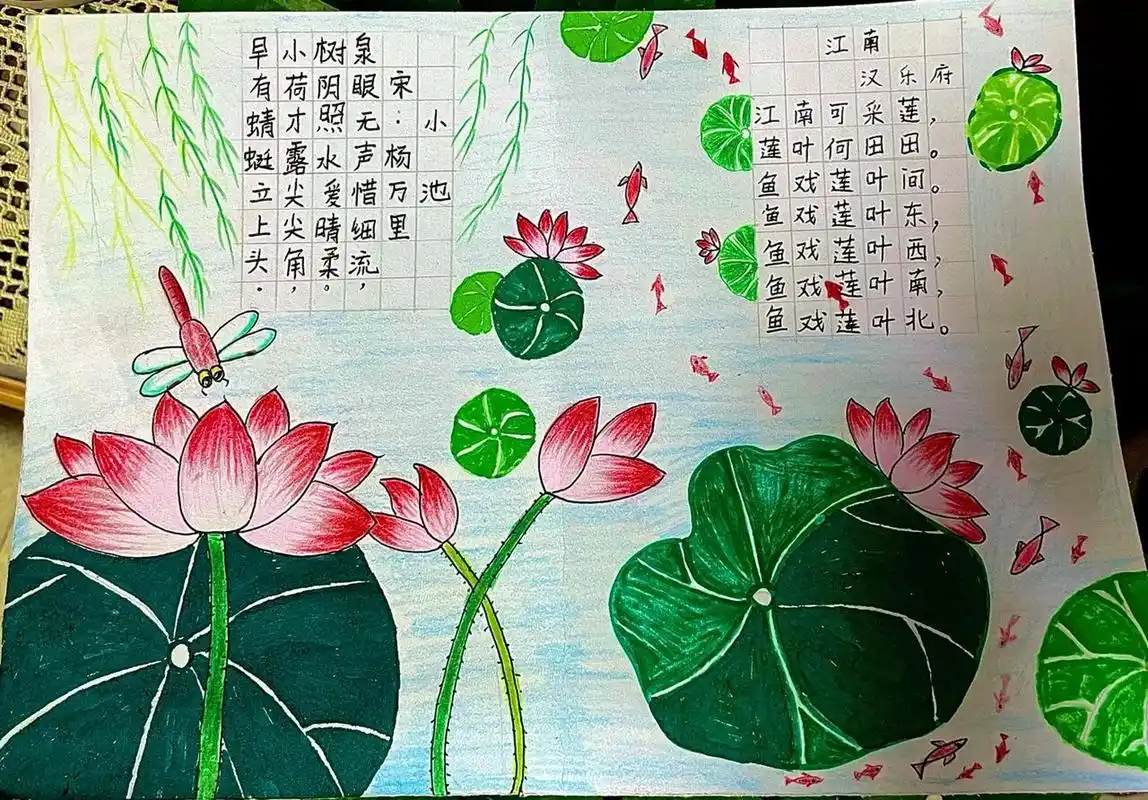 小池
宋:杨万里
泉眼无声惜细流,
树阳照水爱晴柔。
小荷才露尖尖角,
早有蜻蜓立上头.
江南
汉乐府
江南可采莲,
莲叶何田田。
鱼戏莲叶间。
鱼戏莲叶东,
鱼戏莲叶西,
鱼戏莲叶南,
鱼戏莲叶北。